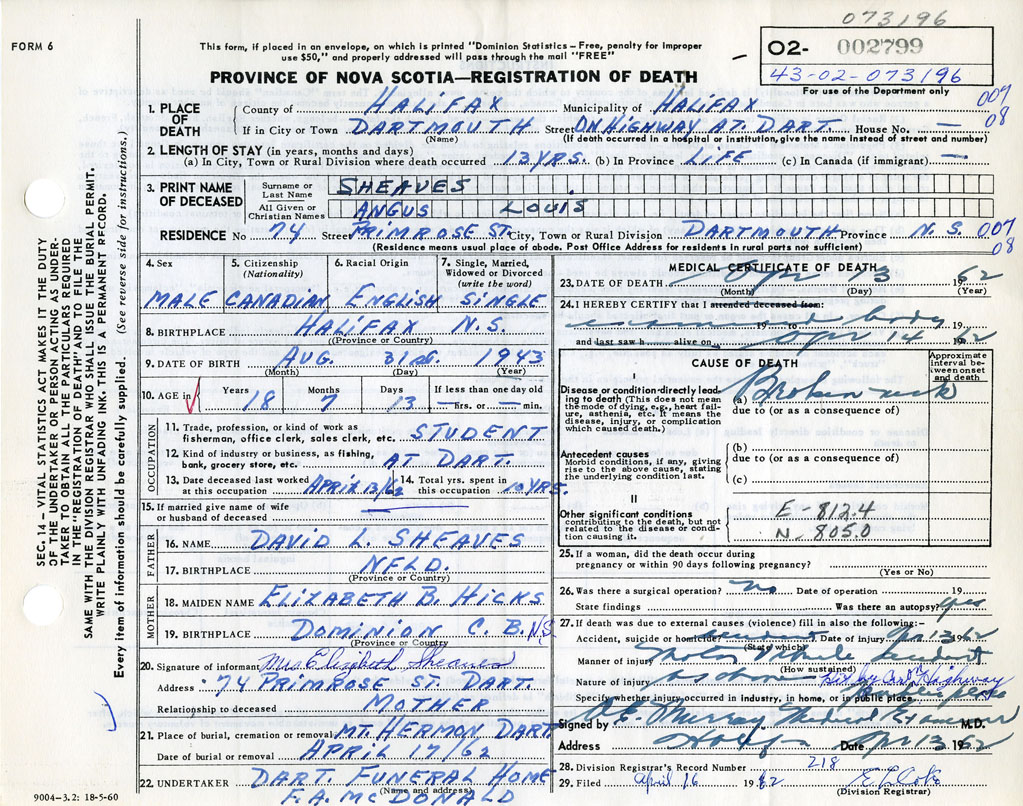 073196
FORM 6
This form, if placed in an envelope, on which is printed "Dominion Statistics – Free, penalty for improper
use $50," and properly addressed will pass through the mail "FREE"
PROVINCE OF NOVA SCOTIA—REGISTRATION OF DEATH
02- 002799
43-02-073196
For use of the Department only
007
08
1. PLACE OF DEATH
County of HALIFAX Municipality of HALIFAX
If in City or Town DARTMOUTH Street ON HIGHWAY AT DART. House No. —
(Name) (If death occurred in a hospital or institution, give the name instead of street and number)
2. LENGTH OF STAY (in years, months and days)
(a) In City, Town or Rural Division where death occurred 13 YRS. (b) In Province LIFE (c) In Canada (if immigrant) —
3. PRINT NAME OF DECEASED
Surname or Last Name SHEAVES
All Given or Christian Names ANGUS LOUIS
RESIDENCE No 74 Street PRIMROSE ST. City, Town or Rural Division DARTMOUTH Province N.S. 007
08
(Residence means usual place of abode. Post Office Address for residents in rural parts not sufficient)
4. Sex 5. Citizenship (Nationality) 6. Racial Origin 7. Single, Married, Widowed or Divorced (write the word)
MALE CANADIAN ENGLISH SINGLE
8. BIRTHPLACE HALIFAX N.S.
(Province or Country)
9. DATE OF BIRTH AUG. 31 1943
(Month) (Day) (Year)
10. AGE in Years Months Days If less than one day old
18 7 13 — hrs. or — min.
OCCUPATION
11. Trade, profession, or kind of work as
fisherman, office clerk, sales clerk, etc. STUDENT
12. Kind of industry or business, as fishing,
bank, grocery store, etc. AT DART.
13. Date deceased last worked at this occupation APRIL 13/62 14. Total yrs. spent in this occupation 10 YRS.
15. If married give name of wife
or husband of deceased
FATHER
16. NAME DAVID L. SHEAVES
17. BIRTHPLACE NFLD.
(Province or Country)
MOTHER
18. MAIDEN NAME ELIZABETH B. HICKS
19. BIRTHPLACE DOMINION C.B. NS
(Province or Country)
20. Signature of informant Mrs Elizabeth Sheaves
Address 74 PRIMROSE ST. DART.
Relationship to deceased MOTHER
21. Place of burial, cremation or removal MT. HERMON DART
Date of burial or removal APRIL 17/62
22. UNDERTAKER DART. FUNERAL HOME
(Name and address)
F.A. McDONALD
MEDICAL CERTIFICATE OF DEATH
23. DATE OF DEATH Apr 3 1962
(Month) (Day) (Year)
24. I HEREBY CERTIFY that I attended deceased from:
examined body 19 to 19
and last saw h alive on Apr 14 1962
CAUSE OF DEATH
Approximate interval between onset and death
I
Disease or condition directly leading to death (This does not mean the mode of dying, e.g., heart failure, asthenia, etc. It means the disease, injury, or complication which caused death.)
(a) Broken neck
due to (or as a consequence of)
Antecedent causes
Morbid conditions, if any, giving rise to the above cause, stating the underlying condition last.
(b)
due to (or as a consequence of)
(c)
II
Other significant conditions
contributing to the death, but not related to the disease or condition causing it.
E-812.4
N-805.0
25. If a woman, did the death occur during
pregnancy or within 90 days following pregnancy?
(Yes or No)
26. Was there a surgical operation? no Date of operation 19
State findings Was there an autopsy? yes
27. If death was due to external causes (violence) fill in also the following:—
Accident, suicide or homicide? accident Date of injury Apr 13 1962
(State which)
Manner of injury Motor Vehicle Accident
(How sustained)
Nature of injury as above Hit by Car on Highway
Specify whether injury occurred in industry, in home, or in public place
Signed by Murray Medical Examiner M.D.
Address Halifax Date Apr 13 1962
28. Division Registrar's Record Number 218
29. Filed April 16 1962
(Division Registrar)
SEC. 14 – VITAL STATISTICS ACT MAKES IT THE DUTY
OF THE UNDERTAKER OR PERSON ACTING AS UNDER-
TAKER TO OBTAIN ALL THE PARTICULARS REQUIRED
IN THE "REGISTRATION OF DEATH" AND TO FILE THE
SAME WITH THE DIVISION REGISTRAR WHO SHALL ISSUE THE BURIAL PERMIT.
WRITE PLAINLY WITH UNFADING INK. THIS IS A PERMANENT RECORD.
Every item of information should be carefully supplied. (See reverse side for instructions.)
9004-3.2: 18-5-60